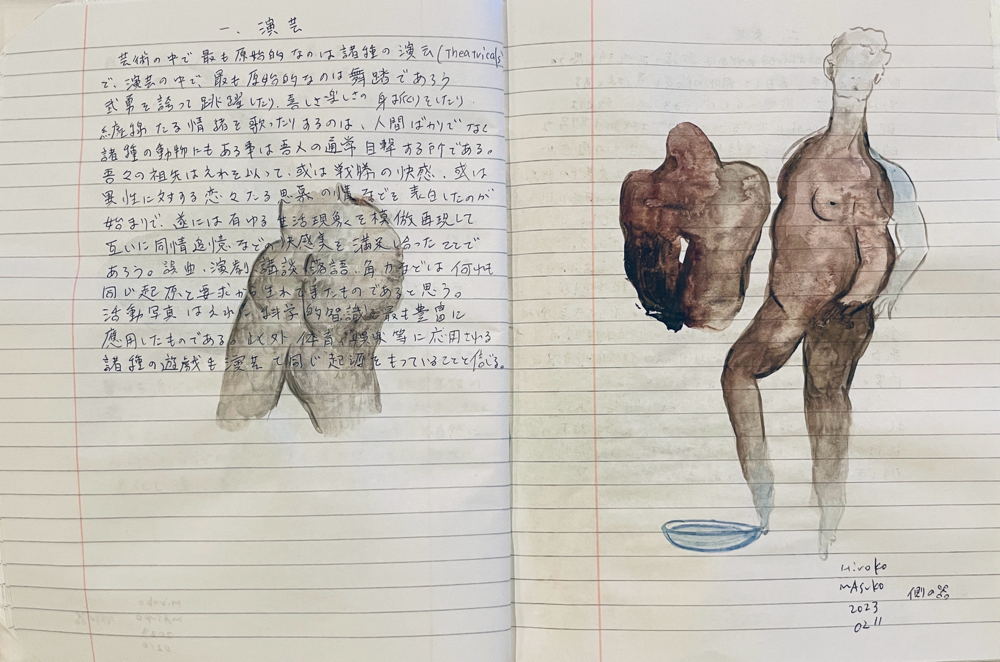 一、演芸
芸術の中で最も原始的なのは諸種の演芸(Theatricals)
で、演芸の中で、最も原始的なのは舞踏であろう
武勇を誇って跳躍したり、喜しさ楽しさの身振りをしたり
纏綿たる情緒を歌ったりあるのは、人間ばかりでなく
諸種の動物にもある事は吾人の通常目撃する所である。
吾々の祖先はそれを以って、或は戦勝の快感、或は
異性に対する恋々たる思慕の情などを表白したのが
始まりで、遂には有ゆる生活現象を模倣再現して
互いに同情追憶などの快感美を満足し合ったことで
あろう。謡曲、演劇、講談、落語、角力などは何れも
同じ起原と要求から生れてきたものであると思う。
活動写真はそれに科学的智識を最も豊富に
應用したものである。此外体育、娯楽等に応用される
諸種の遊戯も演芸と同じ起源をもっていることと信じる。
HiroKo
mASuKo
2023
02 11
側の器